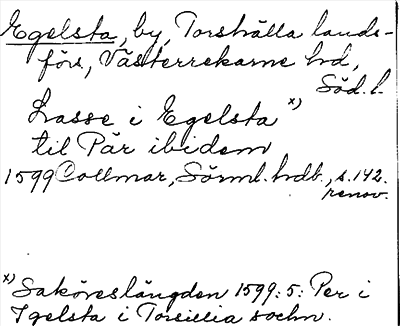 Egelsta, by, Torshälla lands-
förs, Västerrekarne hd,
Söd. l.
Lasse i Egelsta x)
til Pär ibidem
1599 Collmar, Sörml. hdb., s. 142.
renov.
x) Saköreslängden 1599:5: Per i
Igelsta i Torsillia sochn.